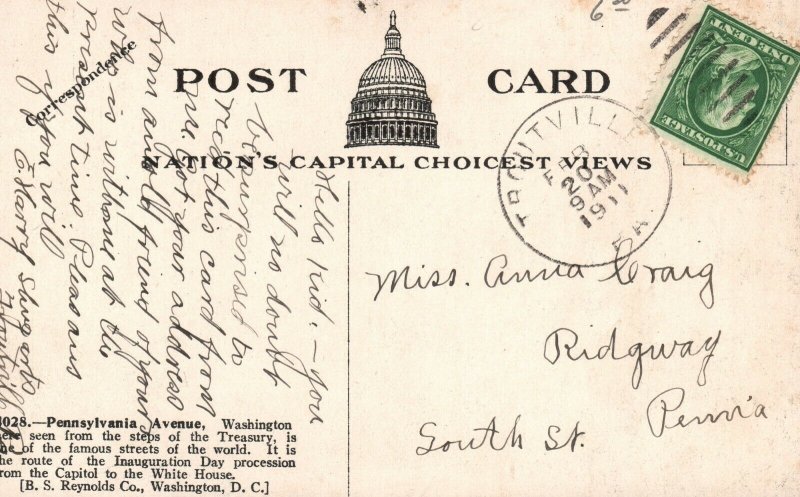 POST CARD
NATION'S CAPITAL CHOICEST VIEWS
Correspondence
ONE CENT
U.S. POSTAGE
TROUTVILLE
FEB
20
9 AM
1911
PA.
Hello Kid. — you
will no doubt
be surprised to
rec'd this card from
me. Got your address
from an old friend of yours
who is with me at the
present time. Pleas ans
this if you will
E. Harry
Troutville Pa
Miss. Anna Craig
Ridgway
Penn'a
South St.
3028.—Pennsylvania Avenue, Washington
here seen from the steps of the Treasury, is
one of the famous streets of the world. It is
the route of the Inauguration Day procession
from the Capitol to the White House.
[B. S. Reynolds Co., Washington, D. C.]